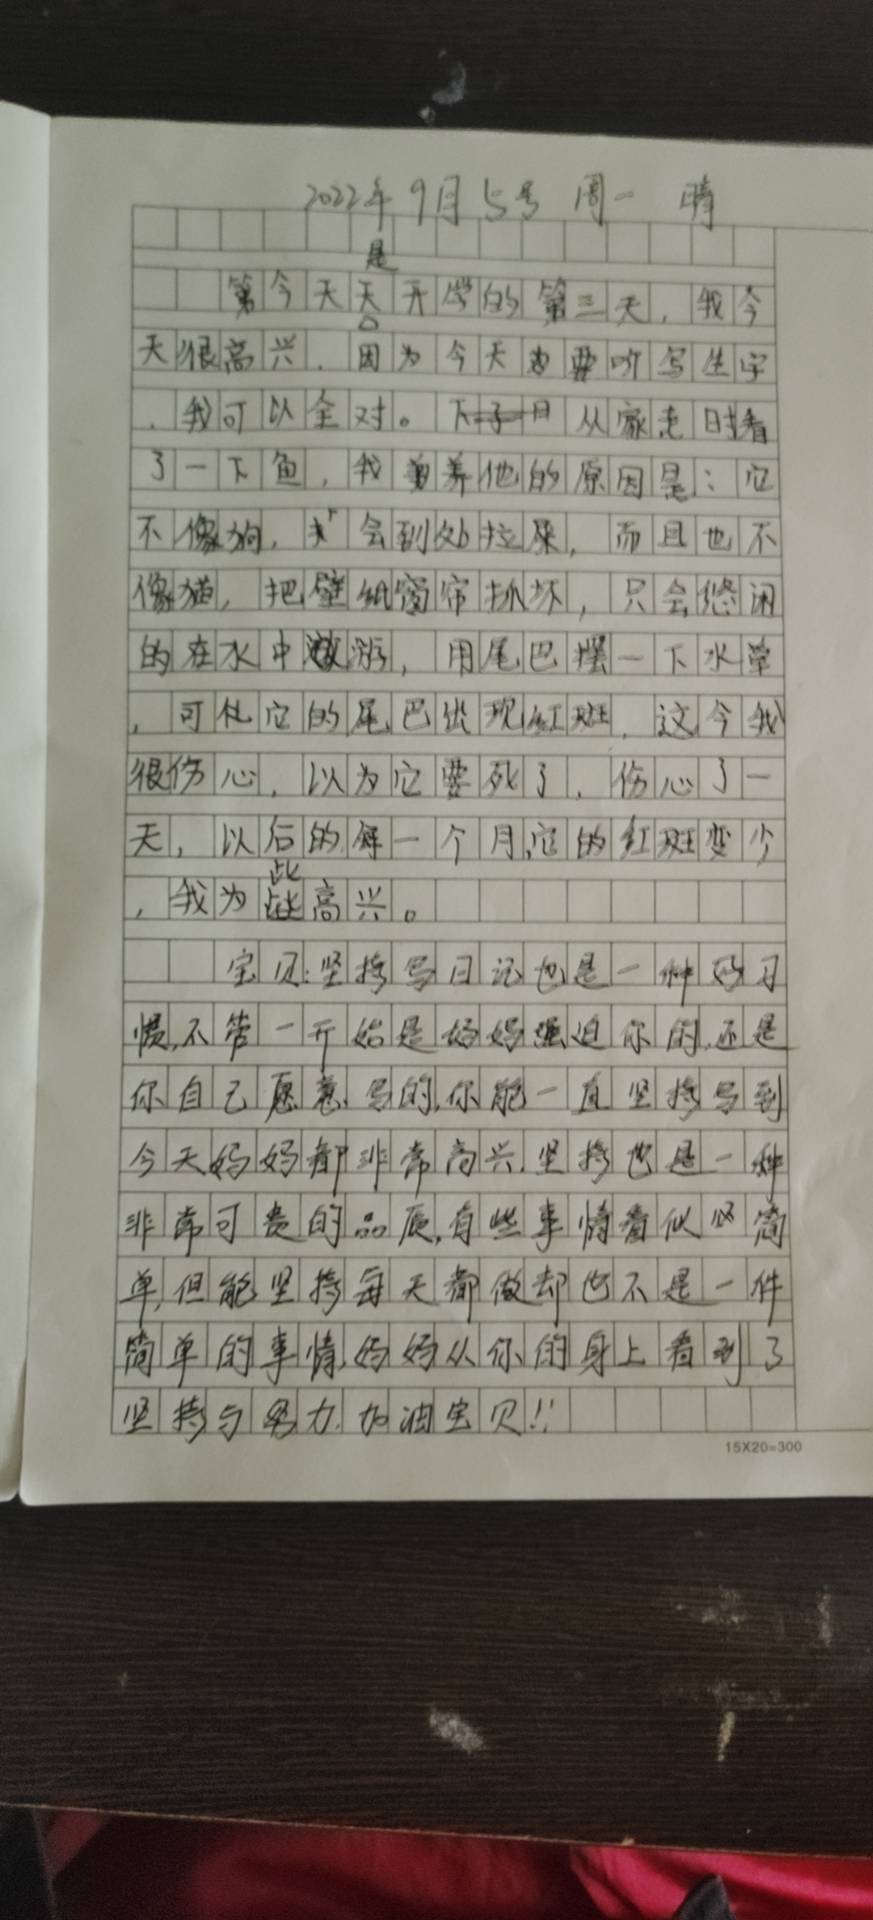 2022年9月5号 周一 晴
是
今天天开学的第三天，我今
天很高兴，因为今天要听写生字
，我可以全对。从家走时看
了一下鱼，我养他的原因是：它
不像狗，会到处拉屎，而且也不
像猫，把壁纸窗帘抓坏，只会悠闲
的在水中游，用尾巴摆一下水草
，可它的尾巴出现红斑，这令我
很伤心，以为它要死了，伤心了一
天，以后的每一个月，它的红斑变少
此
，我为高兴。
宝贝：坚持写日记也是一种好习
惯，不管一开始是妈妈强迫你的，还是
你自己愿意写的，你能一直坚持写到
今天妈妈都非常高兴，坚持也是一种
非常可贵的品质，有些事情看似简
单，但能坚持每天都做却也不是一件
简单的事情，妈妈从你的身上看到了
坚持与努力，加油宝贝！！
15X20=300